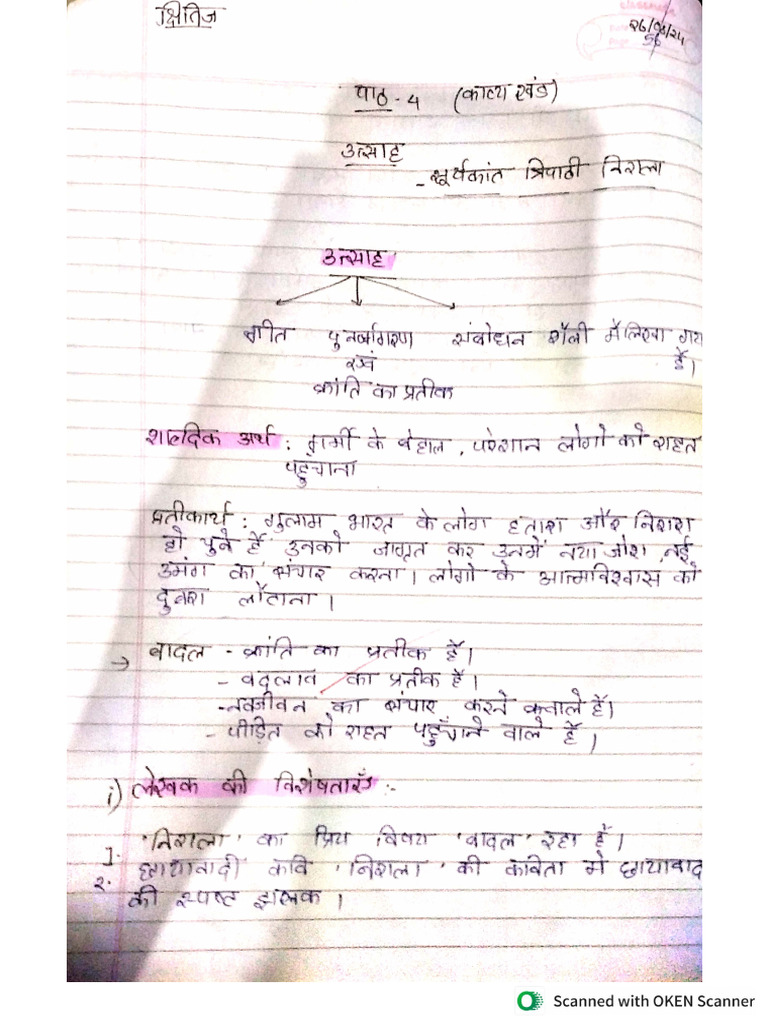 क्षितिज
26/08/24
56
पाठ - 4 (काव्य खंड)
उत्साह
- सूर्यकांत त्रिपाठी निराला
उत्साह
गीत पुनर्जागरण संबोधन शैली में लिखा गया
एवं है।
क्रांति का प्रतीक
शाब्दिक अर्थ : गर्मी के बेहाल , परेशान लोगो को राहत
पहुँचाना
प्रतीकार्थ : गुलाम भारत के लोग हताश और निराश
हो चुके हैं उनको जागृत कर उनमें नया जोश, नई
उमंग का संचार करना। लोगो के आत्मविश्वास को
दुबारा लौटाना।
→ बादल - क्रांति का प्रतीक हैं।
- बदलाव का प्रतीक हैं।
- नवजीवन का संचार करने कवाले हैं।
- पीड़ित को राहत पहुँचाने वाले हैं।
i) लेखक की विशेषताएँ :-
1. 'निराला' का प्रिय विषय 'बादल' रहा हैं।
2. छायावादी कवि 'निराला' की कविता मे छायावाद
की स्पष्ट झलक।
Scanned with OKEN Scanner